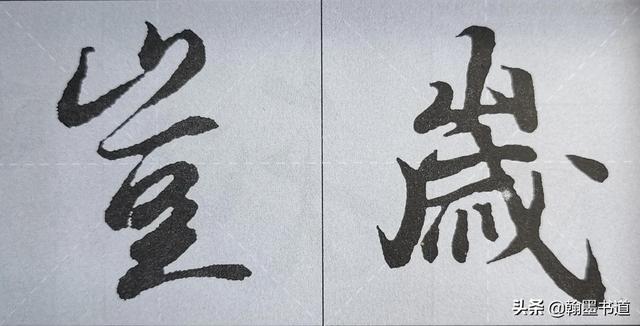 豈歲
头条 @翰墨书道